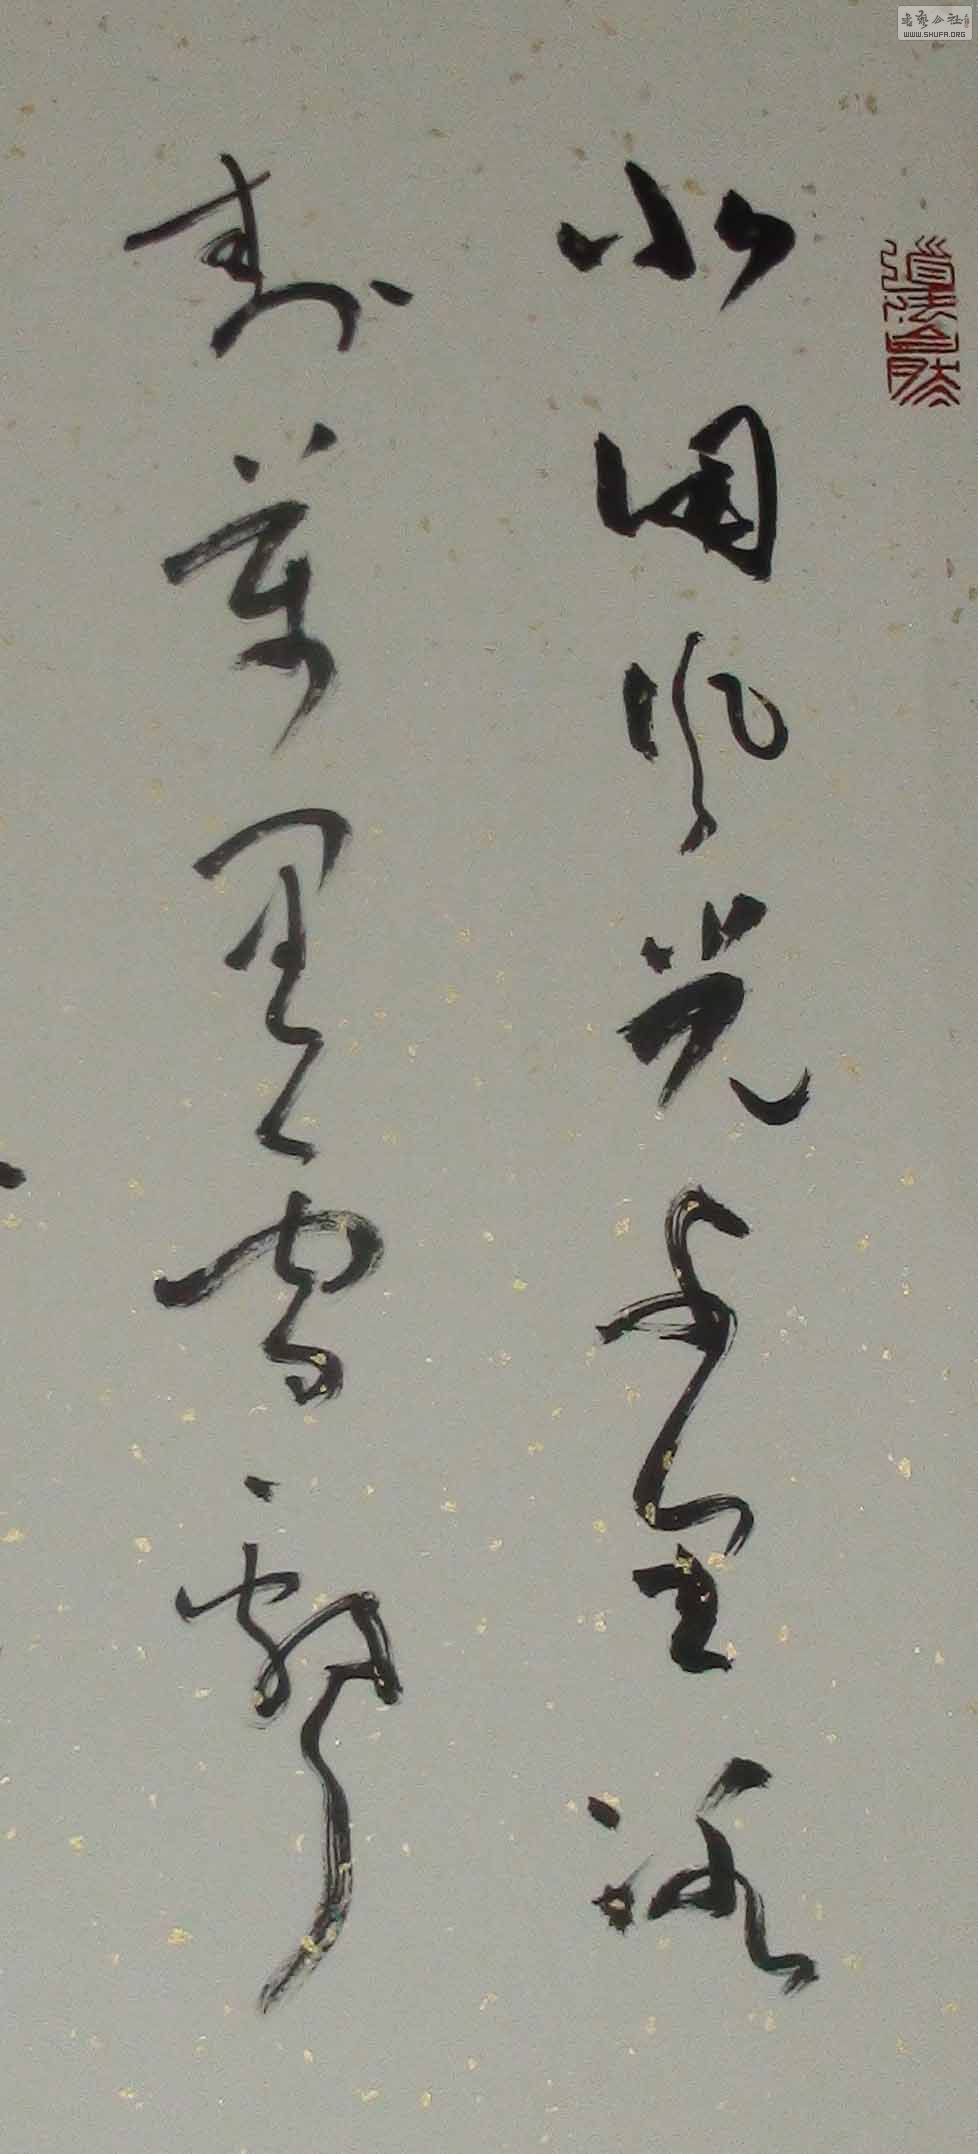 北国风光千里冰
封万里雪飘
道法自然
WWW.SHUFA.ORG